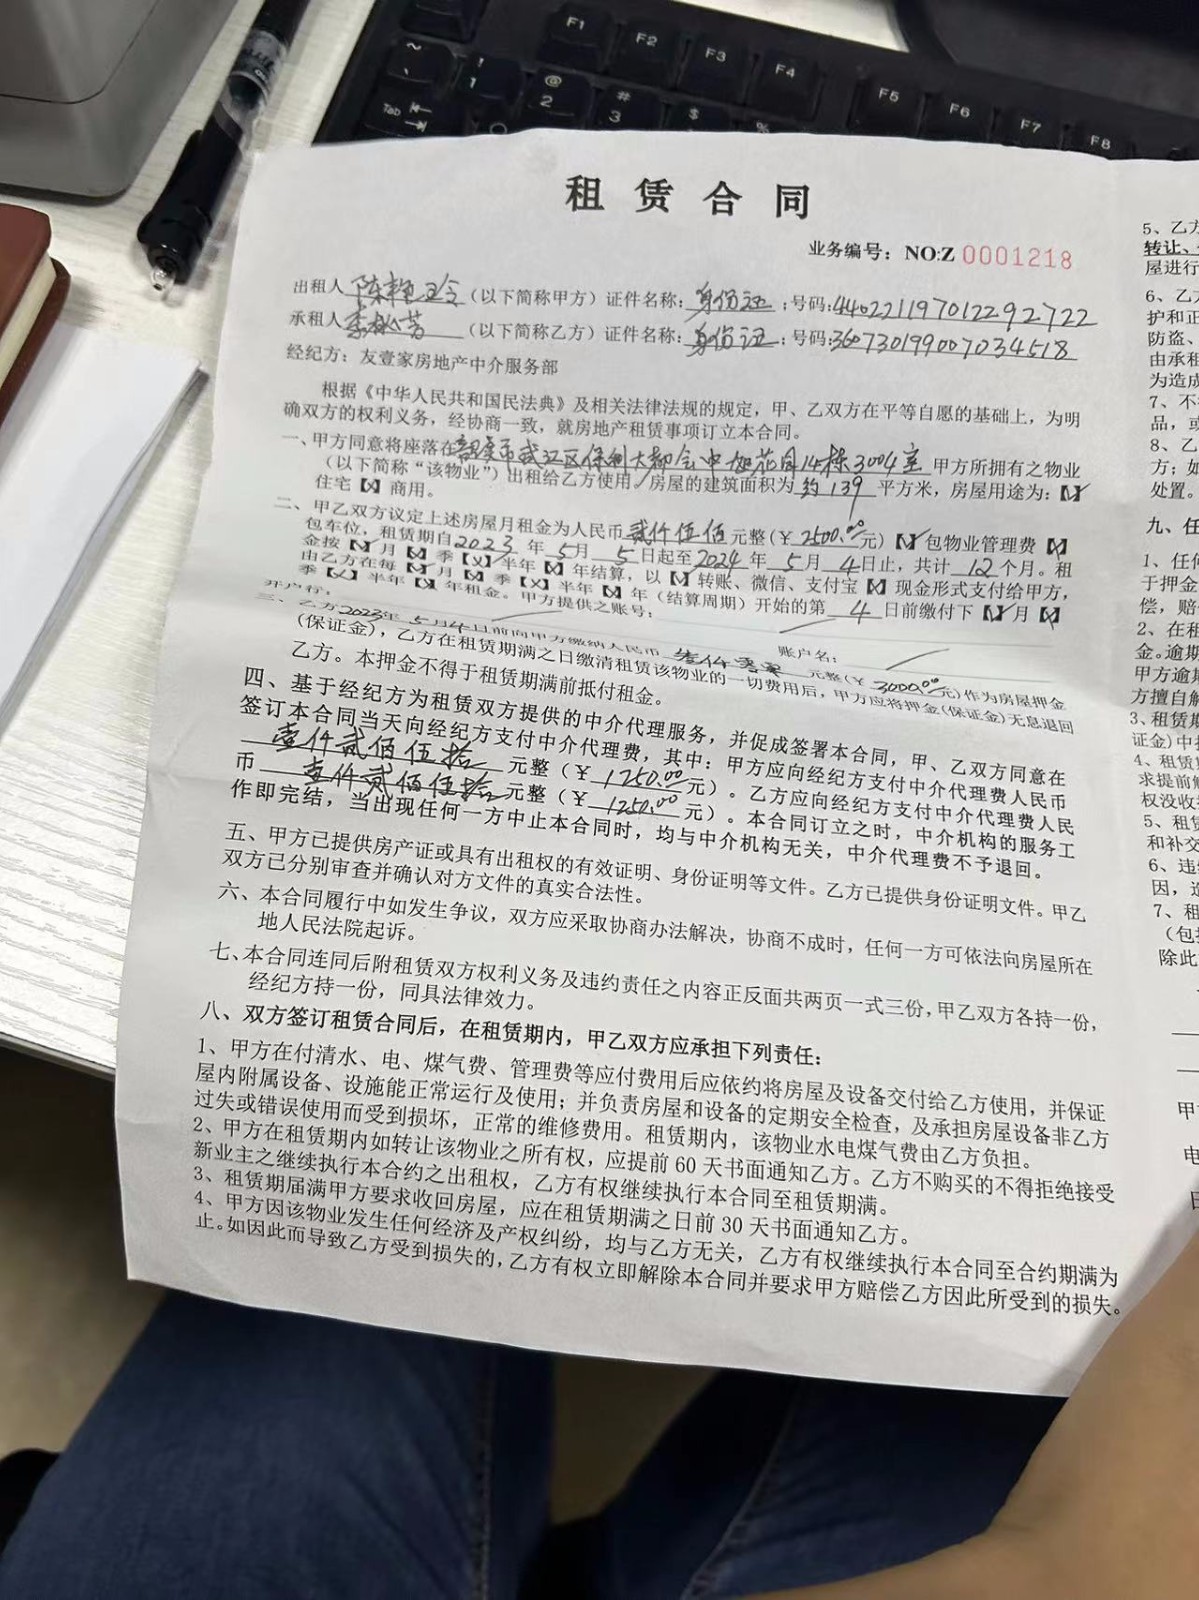 ~
、
!
1
@
2
#
3
$
%
Tab
F1
F2
F3
F4
F5
F6
F7
F8
租 赁 合 同
业务编号：NO:Z 0001218
出租人 陈艳玲（以下简称甲方）证件名称：身份证；号码:440221197012292722
承租人（以下简称乙方）证件名称：身份证；号码:360730199007034518
经纪方：友壹家房地产中介服务部
根据《中华人民共和国民法典》及相关法律法规的规定，甲、乙双方在平等自愿的基础上，为明
确双方的权利义务，经协商一致，就房地产租赁事项订立本合同。
一、甲方同意将座落在韶关市武江区保利大都会中旭花园14栋3004室 甲方所拥有之物业
（以下简称“该物业”）出租给乙方使用，房屋的建筑面积为 约139 平方米，房屋用途为：【✓】
住宅【×】商用。
二、甲乙双方议定上述房屋月租金为人民币 贰仟伍佰 元整（￥2500.00元）【✓】包物业管理费【×】
包车位，租赁期自2023年5月5日起至2024年5月4日止，共计12个月。租
金按【✓】月【×】季【×】半年【×】年结算，以【✓】转账、微信、支付宝【×】现金形式支付给甲方，
由乙方在每【✓】月【×】季【×】半年【×】年（结算周期）开始的第4日前缴付下【✓】月【×】
季【×】半年【×】年租金。甲方提供之账号：
开户行： 账户名：
三、乙方2023年5月4日前向甲方缴纳人民币 元整(￥3000.00元)作为房屋押金
(保证金)，乙方在租赁期满之日缴清租赁该物业的一切费用后，甲方应将押金(保证金)无息退回
乙方。本押金不得于租赁期满前抵付租金。
四、基于经纪方为租赁双方提供的中介代理服务，并促成签署本合同，甲、乙双方同意在
签订本合同当天向经纪方支付中介代理费，其中：甲方应向经纪方支付中介代理费人民币
壹仟贰佰伍拾 元整（￥1250.00元）。乙方应向经纪方支付中介代理费人民
币 壹仟贰佰伍拾 元整（￥1250.00元）。本合同订立之时，中介机构的服务工
作即完结，当出现任何一方中止本合同时，均与中介机构无关，中介代理费不予退回。
五、甲方已提供房产证或具有出租权的有效证明、身份证明等文件。乙方已提供身份证明文件。甲乙
双方已分别审查并确认对方文件的真实合法性。
六、本合同履行中如发生争议，双方应采取协商办法解决，协商不成时，任何一方可依法向房屋所在
地人民法院起诉。
七、本合同连同后附租赁双方权利义务及违约责任之内容正反面共两页一式三份，甲乙双方各持一份，
经纪方持一份，同具法律效力。
八、双方签订租赁合同后，在租赁期内，甲乙双方应承担下列责任：
1、甲方在付清水、电、煤气费、管理费等应付费用后应依约将房屋及设备交付给乙方使用，并保证
屋内附属设备、设施能正常运行及使用；并负责房屋和设备的定期安全检查，及承担房屋设备非乙方
过失或错误使用而受到损坏，正常的维修费用。租赁期内，该物业水电煤气费由乙方负担。
2、甲方在租赁期内如转让该物业之所有权，应提前60天书面通知乙方。乙方不购买的不得拒绝接受
新业主之继续执行本合约之出租权，乙方有权继续执行本合同至租赁期满。
3、租赁期届满甲方要求收回房屋，应在租赁期满之日前30天书面通知乙方。
4、甲方因该物业发生任何经济及产权纠纷，均与乙方无关，乙方有权继续执行本合同至合约期满为
止。如因此而导致乙方受到损失的，乙方有权立即解除本合同并要求甲方赔偿乙方因此所受到的损失。
5、乙方
转让、
屋进行
6、乙方
护和正
防盗、
由承租
为造成
7、不
品，或
8、乙
方；如
处置。
九、任
1、任何
于押金
偿，赔
2、在租
金。逾期
甲方逾期
方擅自解
3、租赁期
证金)中扌
4、租赁
求提前解
权没收扌
5、租赁
和补交
6、违约
因，造
7、租
（包扌
除此
甲
电
日